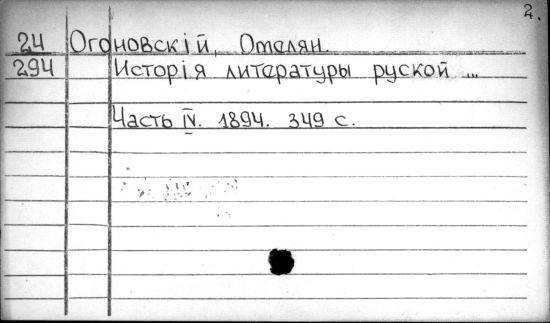 2.
24 Огоновскій, Омелян.
294 Исторія литературы руской ...
Часть IV. 1894. 349 с.